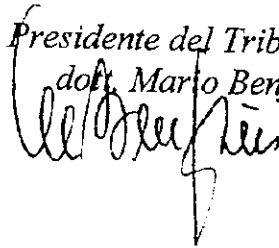 Presidente del Trib
dott. Mario Ben